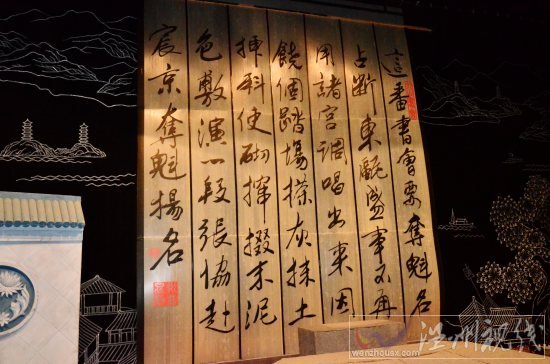 這番書會要奪魁名
占斷東甌盛事不再
用諸宮調唱出來因
饒個踏場搽灰抹土
插科使砌攛掇末泥
色敷演一段張協赴
宸京奪魁揚名
wenzhousx.com